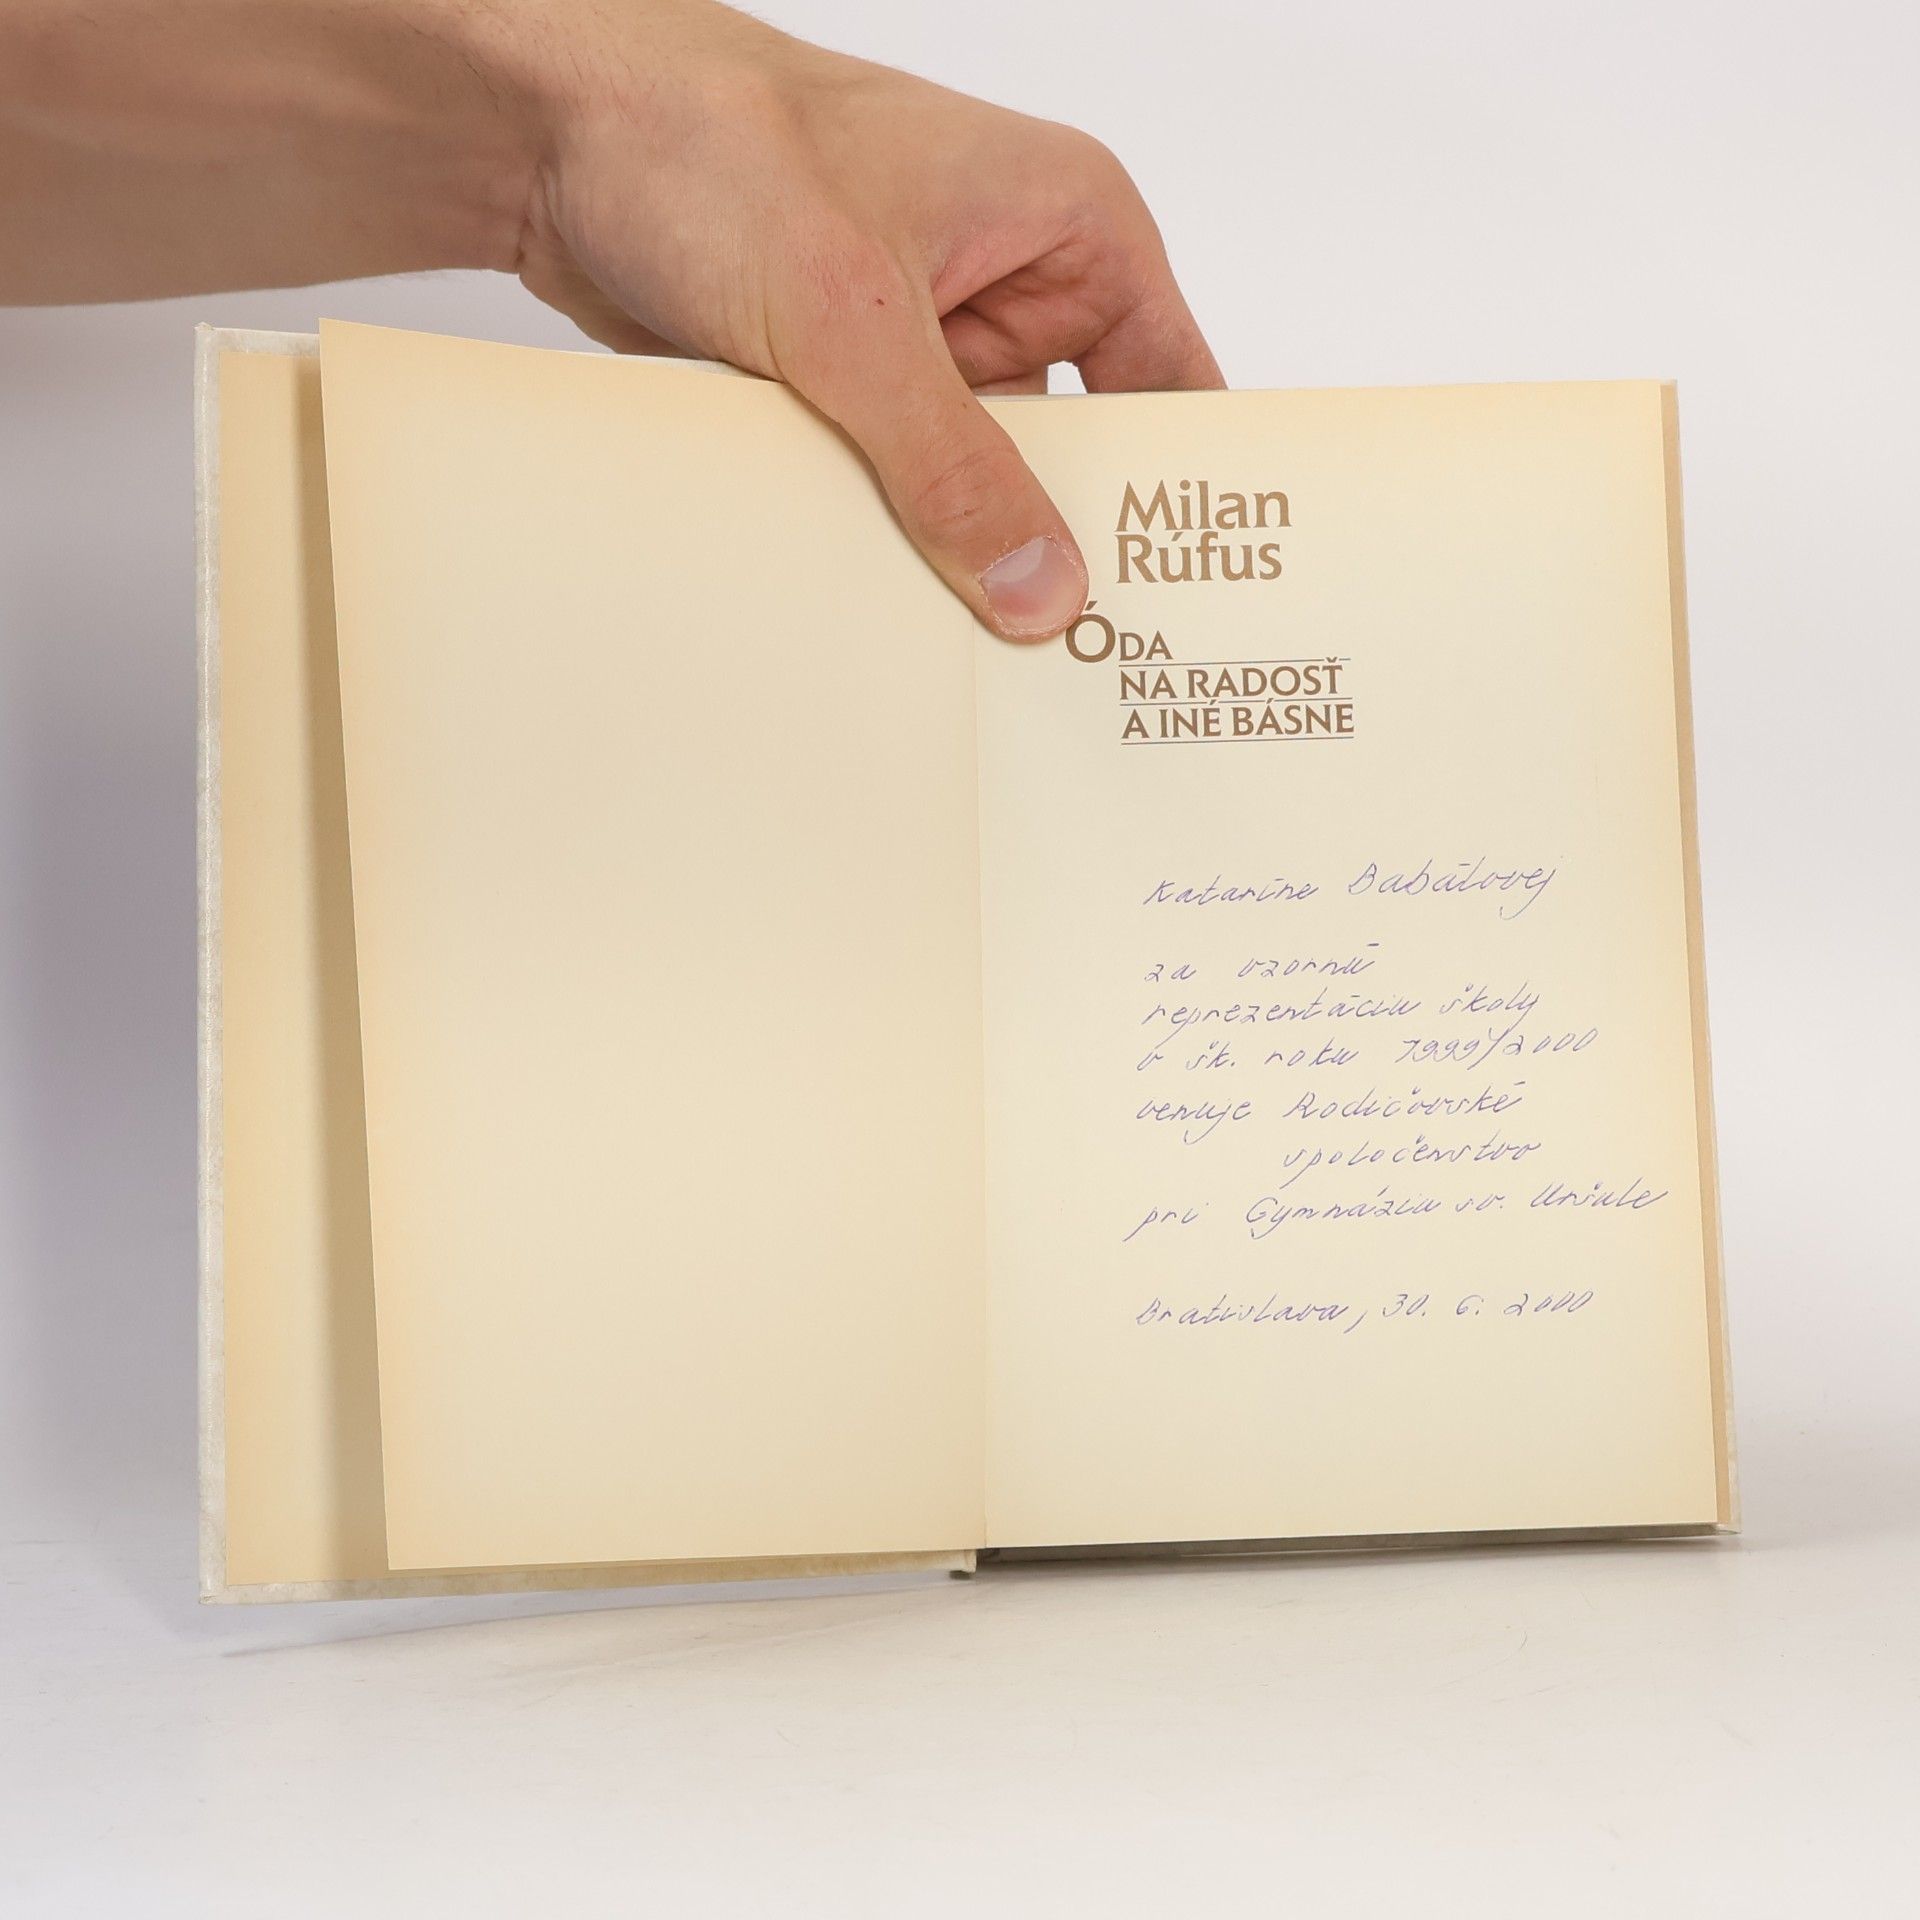 Milan
Rúfus
ÓDA
NA RADOSŤ
A INÉ BÁSNE
Kataríne Babálovej
za vzornú
reprezentáciu školy
v šk. roku 1999/2000
venuje Rodičovské
spoločenstvo
pri Gymnáziu sv. Uršule
Bratislava, 30. 6. 2000